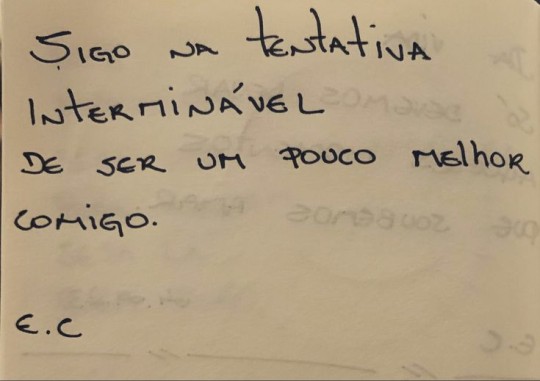 SIGO NA TENTATIVA
INTERMINÁVEL
DE SER UM POUCO MELHOR
COMIGO.
E.C